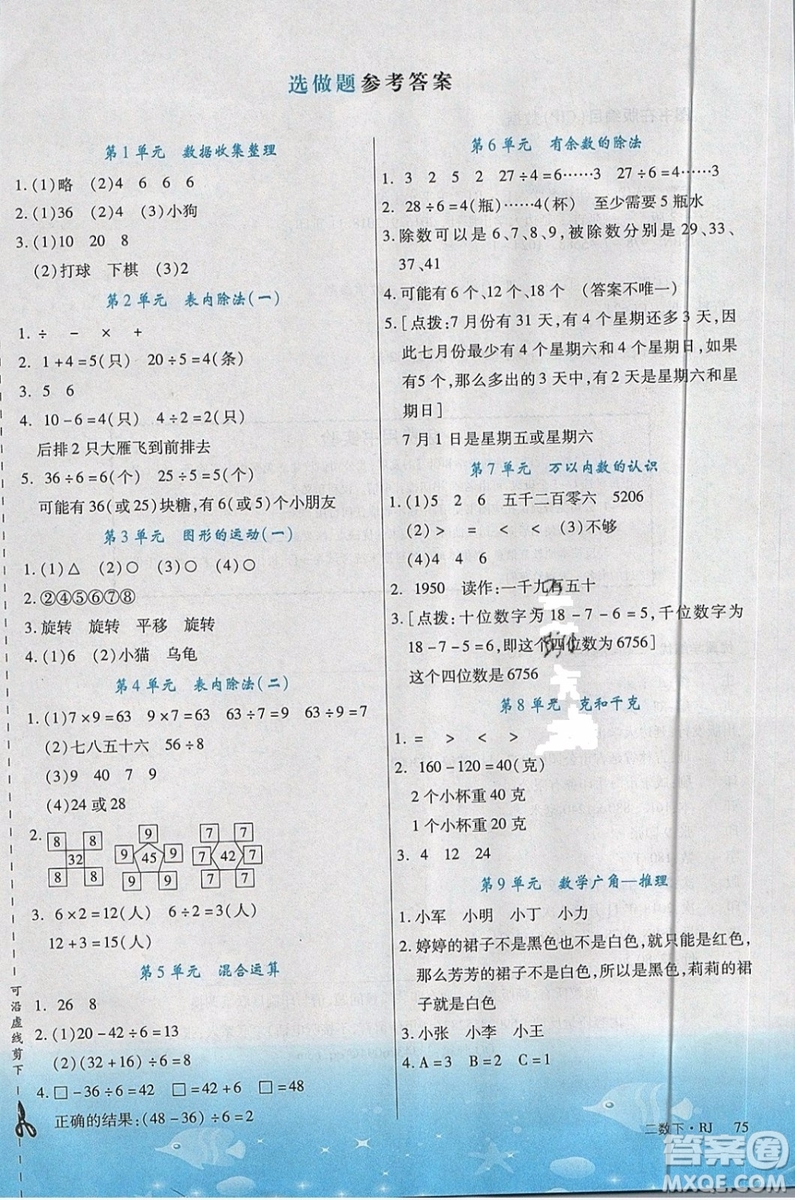 选做题参考答案
第1单元 数据收集整理
1.(1)略 (2)4 6 6 6
2.(1)36 (2)4 (3)小狗
3.(1)10 20 8
(2)打球 下棋 (3)2
第2单元 表内除法(一)
1. ÷ － × ＋
2. 1+4=5(只) 20÷5=4(条)
3. 5 6
4. 10-6=4(只) 4÷2=2(只)
后排2只大雁飞到前排去
5. 36÷6=6(个) 25÷5=5(个)
可能有36(或25)块糖,有6(或5)个小朋友
第3单元 图形的运动(一)
1.(1)△ (2)○ (3)○
2.②④⑤⑥⑦⑧
3.旋转 旋转 平移 旋转
4.(1)6 (2)小猫 乌龟
第4单元 表内除法(二)
1.(1)7×9=63 9×7=63 63÷9=7
(2)七八五十六 56÷8
(3)9 40 7 9
(4)24或28
2.
8 8 9 7 7
32 9 45 9 7 42 7
8 8 9 9 7 7
3. 6×2=12(人) 6÷2=3(人)
12+3=15(人)
第5单元 混合运算
1. 26 8
2.(1)20-42÷6=13
(2)(32+16)÷6=8
4.□-36÷6=42 □÷6=42 □=48
正确的结果:(48-36)÷6=2
第6单元 有余数的除法
1. 3 2 5 2 27÷4=6……3 27÷6=4……3
2. 28÷6=4(瓶)……4(杯) 至少需要5瓶水
3.除数可以是6、7、8、9,被除数分别是29、33、
37、41
4.可能有6个、12个、18个 (答案不唯一)
5.[点拨:7月份有31天,有4个星期还多3天,因
此七月份最少有4个星期六和4个星期日。如
果有5个,那么多出的3天中应该有星期六和星
期日]
7月1日是星期五或星期六
第7单元 万以内数的认识
1.(1)5 2 6 五千二百零六 5206
(2)> = < < (3)不够
(4)4 4 6
2. 1950 读作:一千九百五十
3.[点拨:十位数字为18-7-6=5,千位数字为
18-7-5=6,即这个四位数是6756]
这个四位数是6756
第8单元 克和千克
1. = > < >
2. 160-120=40(克)
2个小杯重40克
1个小杯重20克
3. 4 12 24
第9单元 数学广角—推理
1.小军 小明 小丁 小力
2.婷婷的裙子不是黑色也不是白色,就只能是红色,
那么芳芳的裙子不是白色,所以是黑色,莉莉的裙
子就是白色
3.小张 小李 小王
4. A=3 B=2 C=1
可沿虚线剪下
二数下·RJ 75
答案圈
MXQE.COM